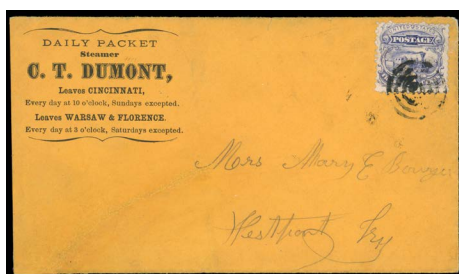 DAILY PACKET
Steamer
C. T. DUMONT,
Leaves CINCINNATI,
Every day at 10 o'clock, Sundays excepted.
Leaves WARSAW & FLORENCE.
Every day at 3 o'clock, Saturdays excepted.
POSTAGE
Mrs Mary E
Westport Ky